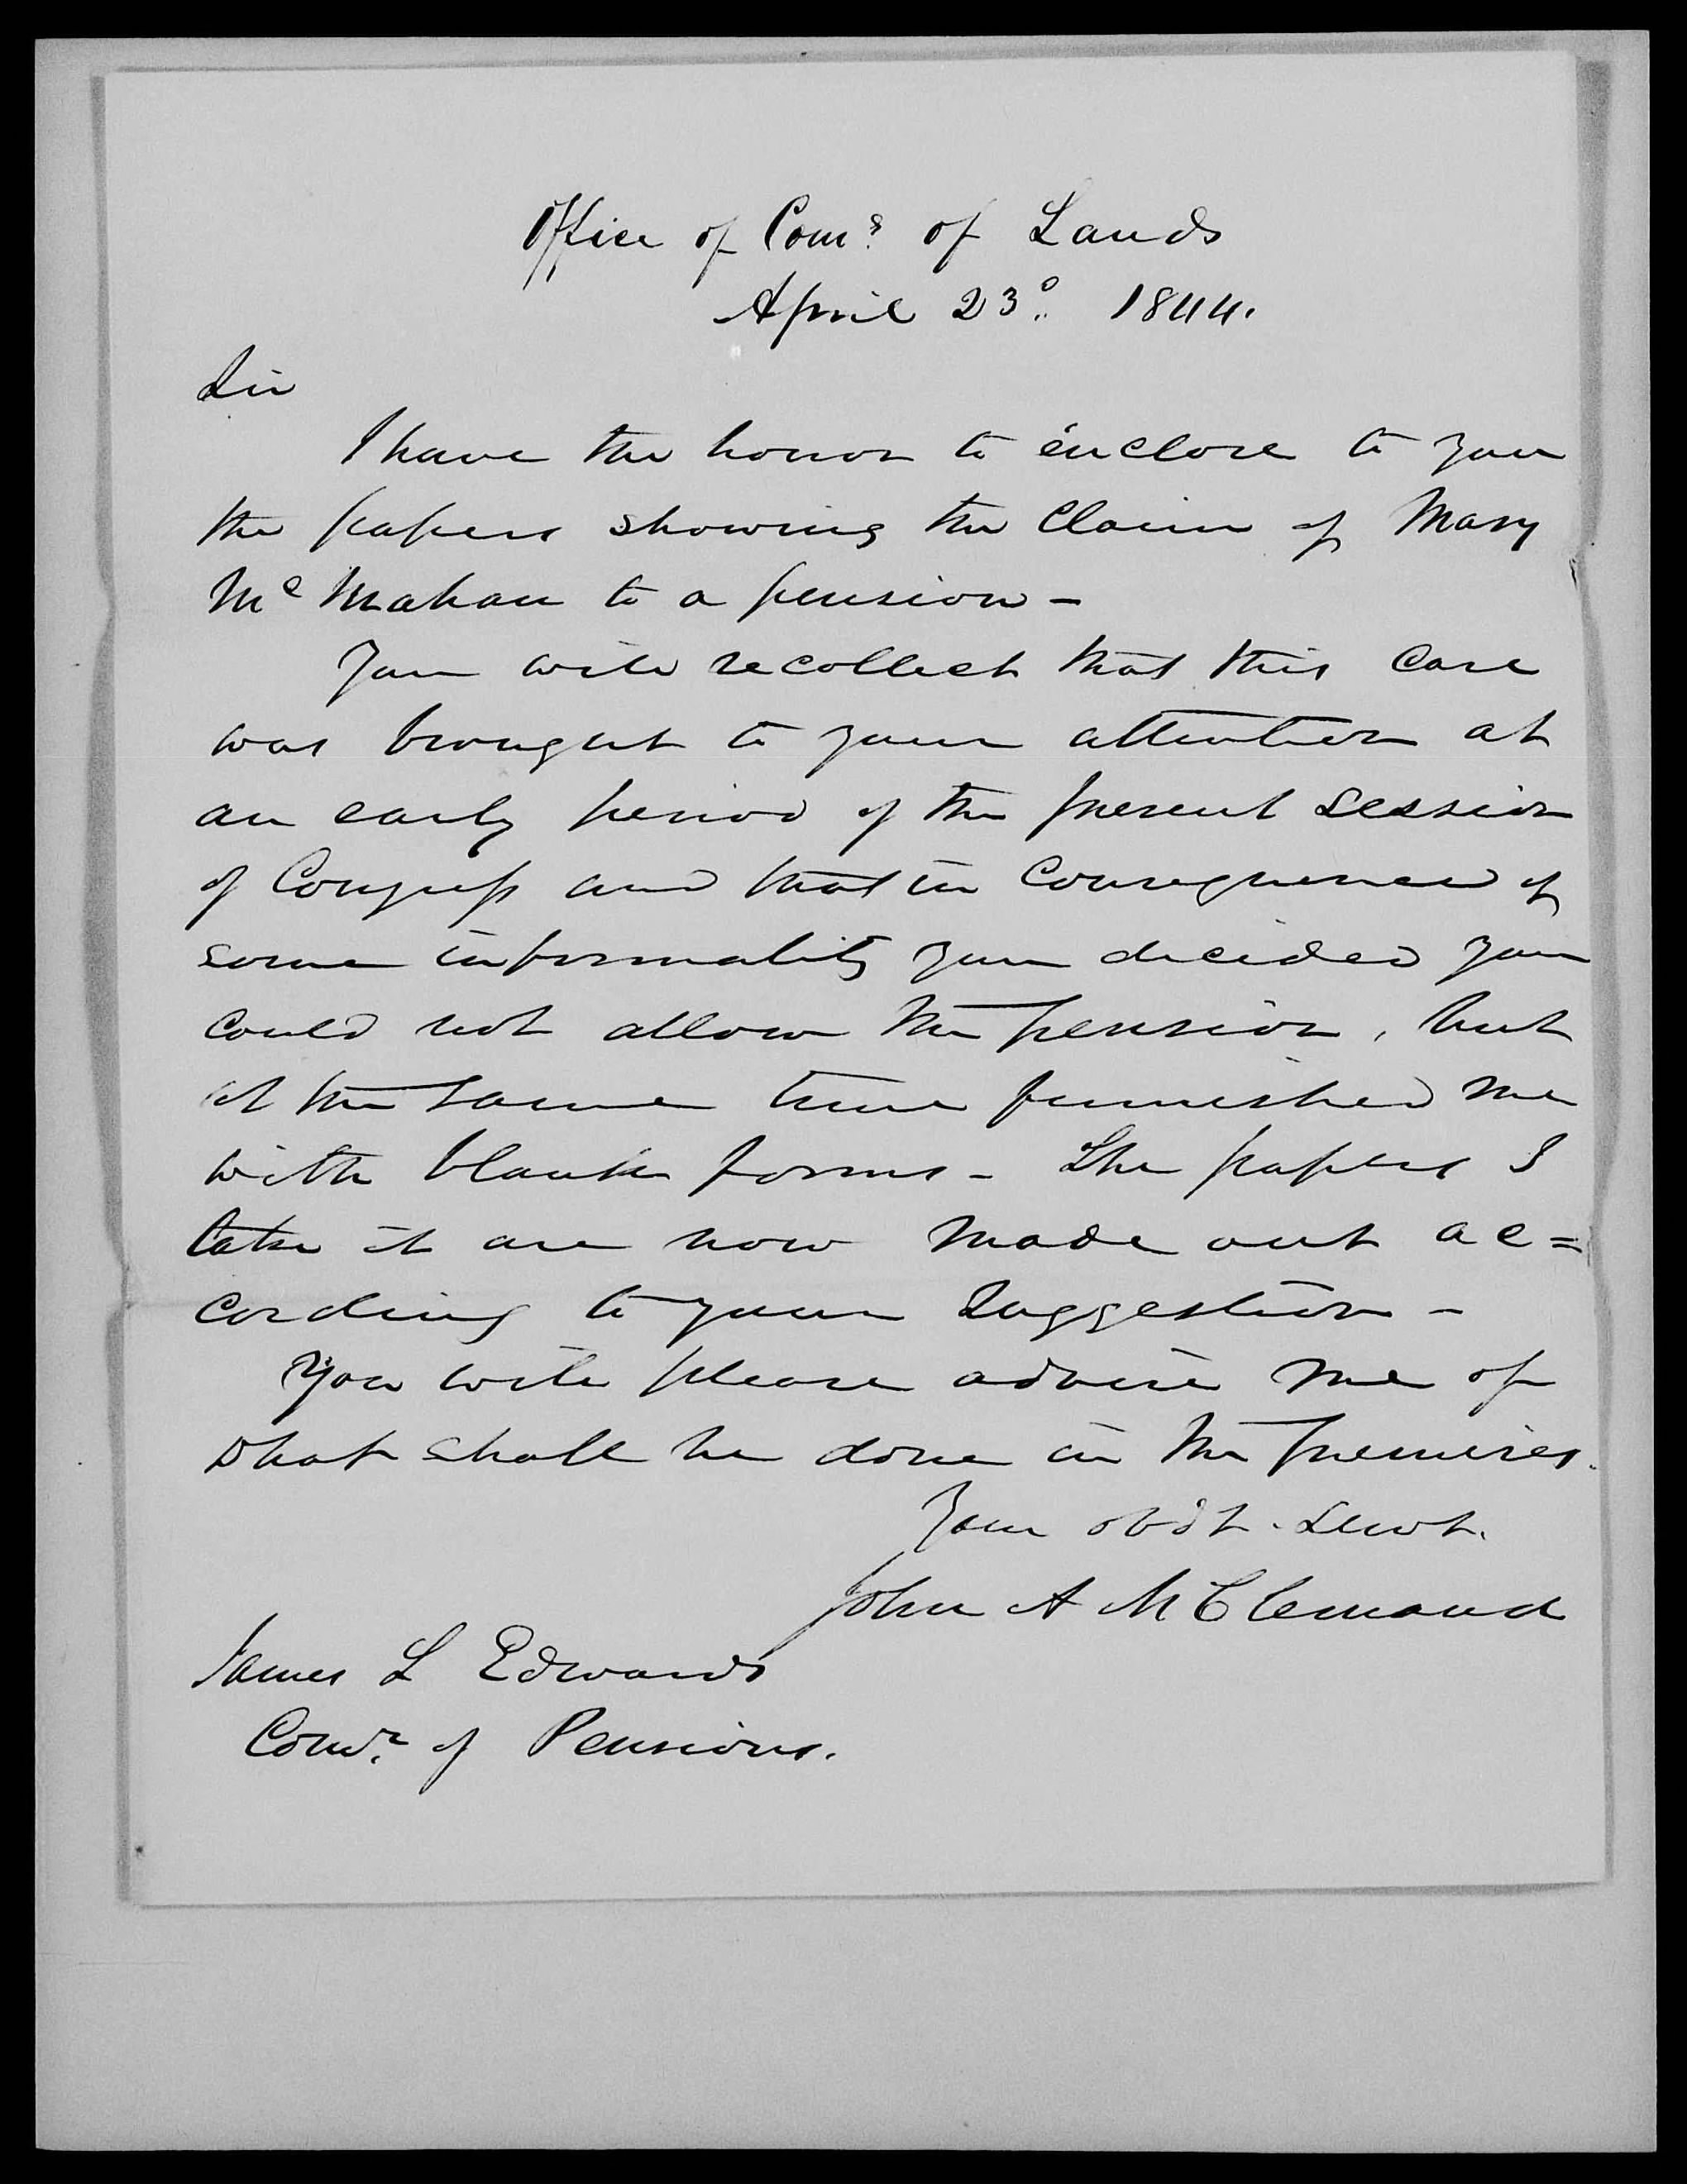 Office of Comr. of Lands
April 23d. 1844.
Sir
I have the honor to enclose to you
the papers showing the Claim of Mary
Mc Mahan to a pension -
You will recollect that this case
was brought to your attention at
an early period of the present session
of Congress and that in consequence of
some informality you decided you
could not allow the pension, but
at the same time furnished me
with blank forms - The papers I
take it are now made out ac=
cording to your suggestion -
You will please advise me of
what shall be done in the premises.
Your obdt. servt.
John A McClernand
James L Edwards
Comr. of Pensions.